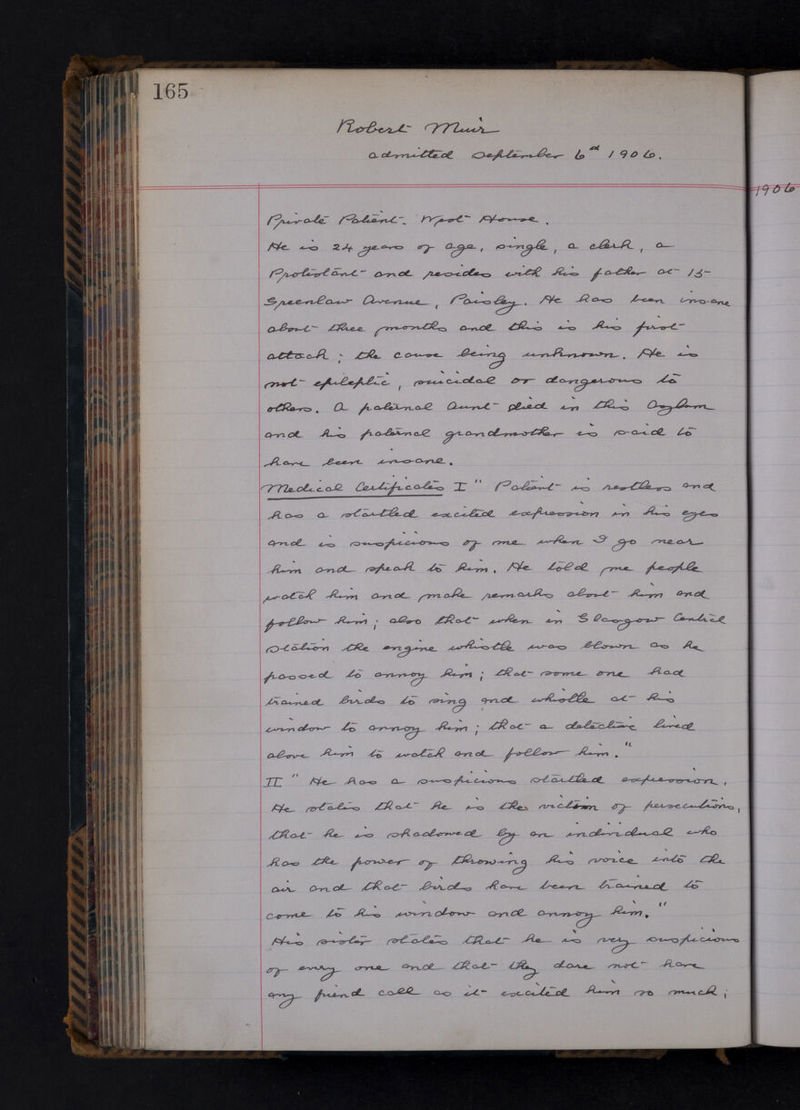 165
Robert Muir
admitted September 6th 1906.
1906
Private Patient. West House.
He is 24 years of age, single, a clerk, a
Protestant and resides with his father at 15
Greenlaw Avenue, Paisley. He has been insane
about three months and this is his first
attack; the cause being unknown. He is
not epileptic, suicidal or dangerous to
others. A paternal Aunt died in this Asylum
and his paternal grandmother is said to
have been insane.
Medical Certificates I " Patient is restless and
has a startled excited expression in his eyes
and is suspicious of me when I go near
him and speak to him. He told me people
watch him and make remarks about him and
follow him; also that when in Glasgow Central
Station the engine whistle was blown as he
passed to annoy him; that some one had
trained birds to sing and whistle at his
window to annoy him; that a detective lived
above him to watch and follow him."
II " He has a suspicious startled expression.
He states that he is the victim of persecutions,
that he is shadowed by an individual who
has the power of throwing his voice into the
air and that birds have been trained to
come to his window and annoy him."
His sister states that he is very suspicious
of every one and that they dare not have
any friend call as it excited him so much;